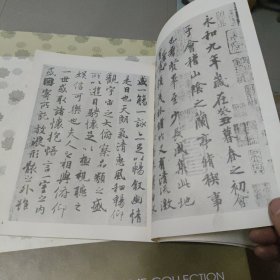 永和九年歲在癸丑暮春之初會
于會稽山陰之蘭亭脩稧事
也羣賢畢至少長咸集此地
清流激
盛一觴一詠亦足以暢敘幽情
是日也天朗氣清惠風和暢仰
觀宇宙之大俯察品類之盛
所以遊目騁懷足以極視聽之
娛信可樂也夫人之相與俯仰
一世或取諸懷抱悟言一室之內
或因寄所託放浪形骸之外雖
COLLECTION